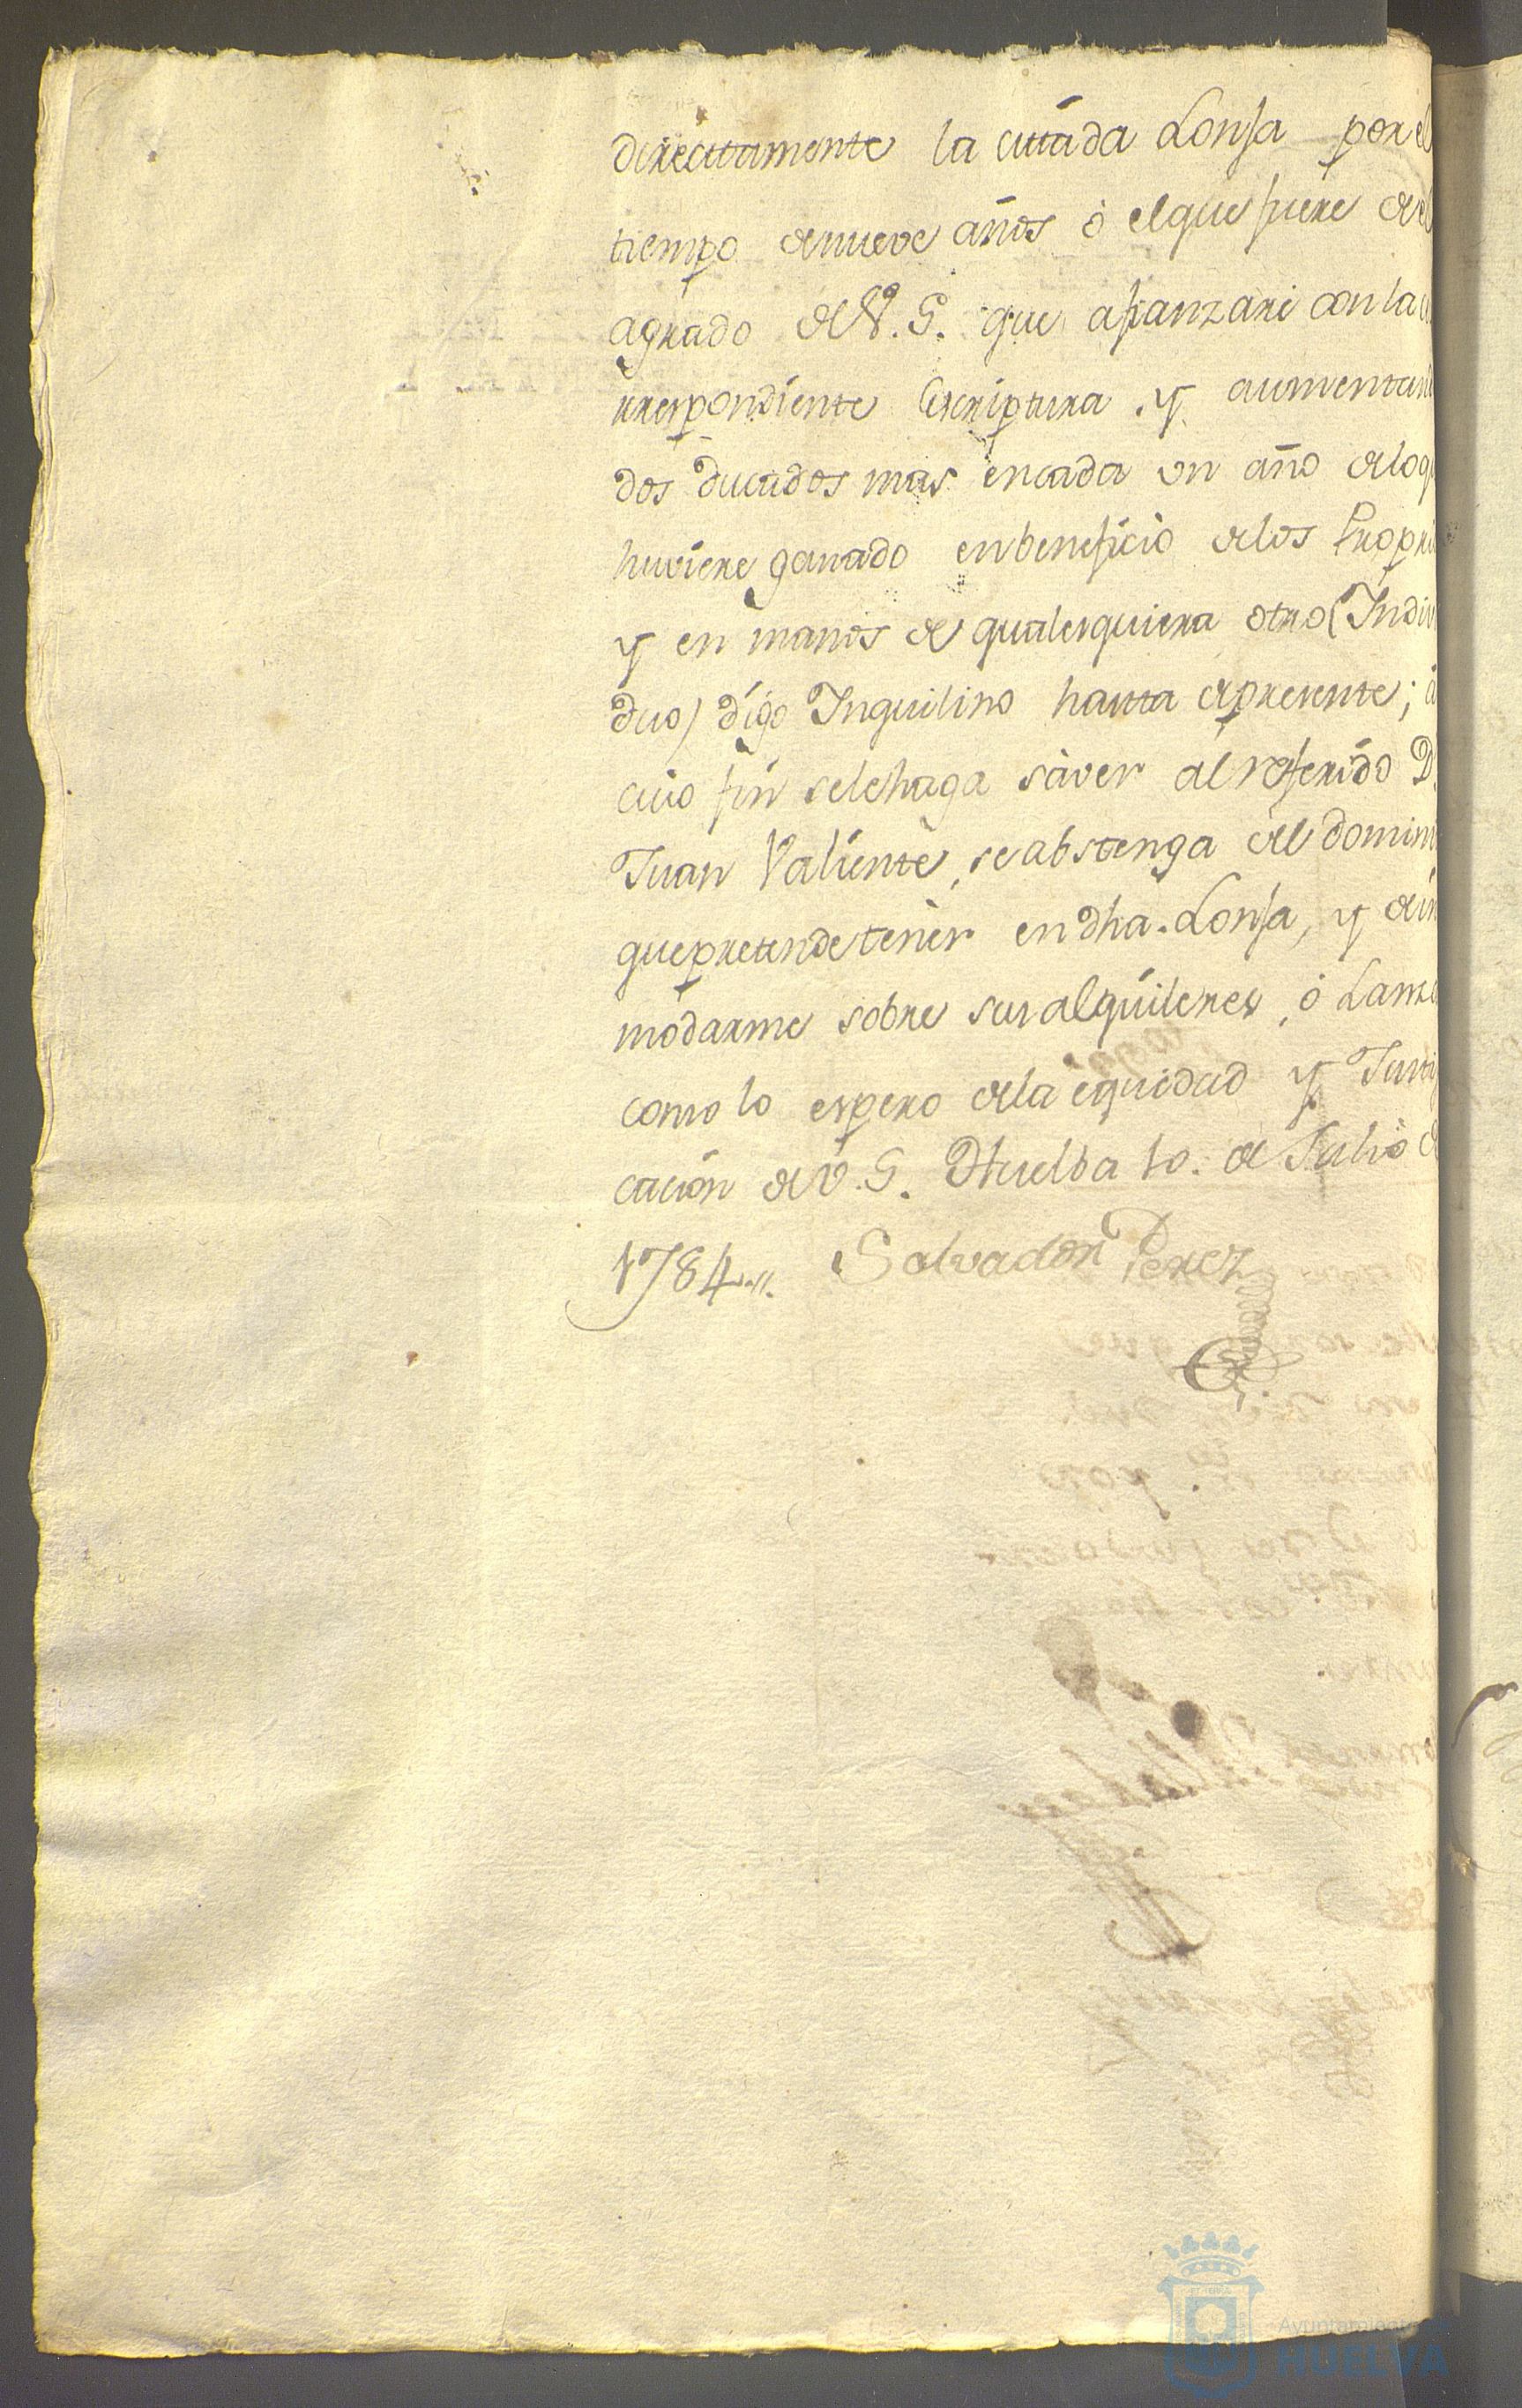 directamente la citada Lonja por el
tiempo de nueve años ó el que fuere del
agrado de V.S. que afianzaré con la co
rrespondiente Escriptura, y aumentand
dos ducados mas en cada un año de loq
huviere ganado en beneficio de los Propri
y en manos de qualesquiera otro (Indiv
duo) dígo Inquilino hasta el presente; á
cuio fin se le haga sàver al referido D.
Juan Valiente, se abstenga del domin
que pretende tenèr en dha. Lonja, y de in
modarme sobre sus alquileres, ó Lanza
como lo espero de la equidad y Justi
cación de V.S. Huelba 10. de Julio de
1784.
Salvador Perez
Ayuntamiento
HUELVA